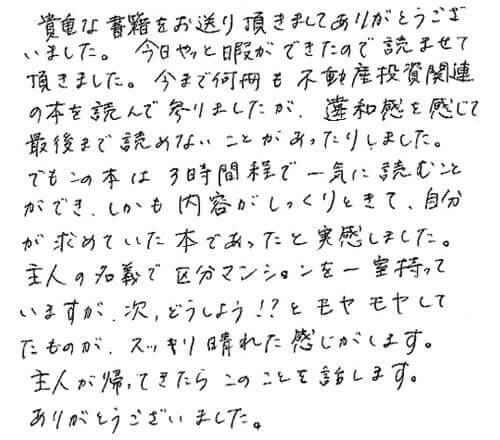 貴重な書籍をお送り頂きましてありがとうござ
いました。今日やっと暇ができたので読ませて
頂きました。今まで何冊も不動産投資関連
の本を読んで参りましたが、違和感を感じて
最後まで読めないことがあったりしました。
でもこの本は3時間程で一気に読むこと
ができ、しかも内容がしっくりときて、自分
が求めていた本であったと実感しました。
主人の名義で区分マンションを一室持って
いますが、次、どうしよう!?とモヤモヤして
たものが、スッキリ晴れた感じがします。
主人が帰ってきたらこのことを話します。
ありがとうございました。